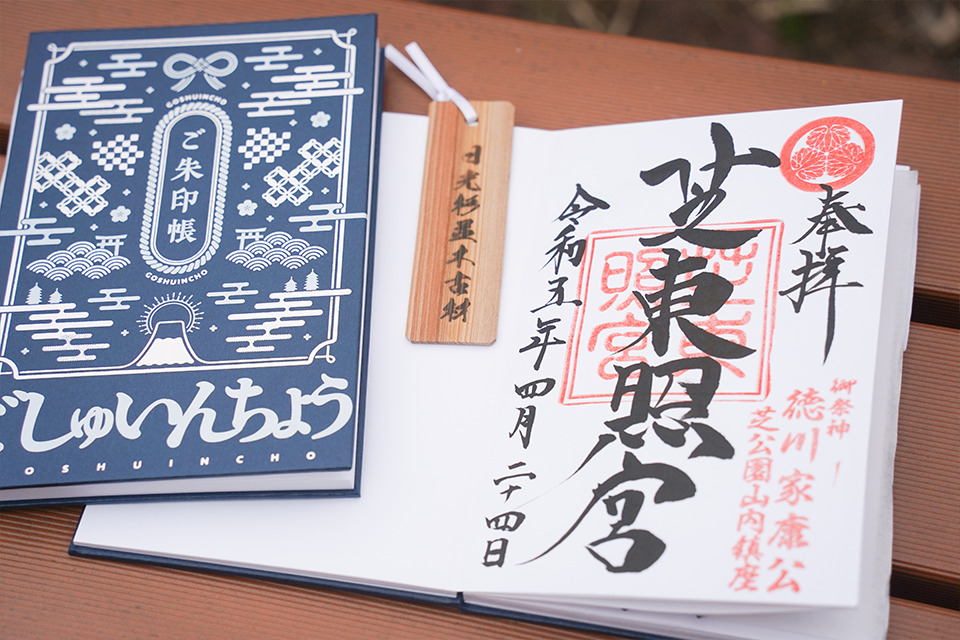 GOSHUINCHO
ご朱印帳
GOSHUINCHO
ごしゅいんちょう
GOSHUINCHO
日光杉並木古材
奉拝
芝東照宮
芝東照宮
令和五年四月二十四日
御祭神
徳川家康公
芝公園山内鎮座